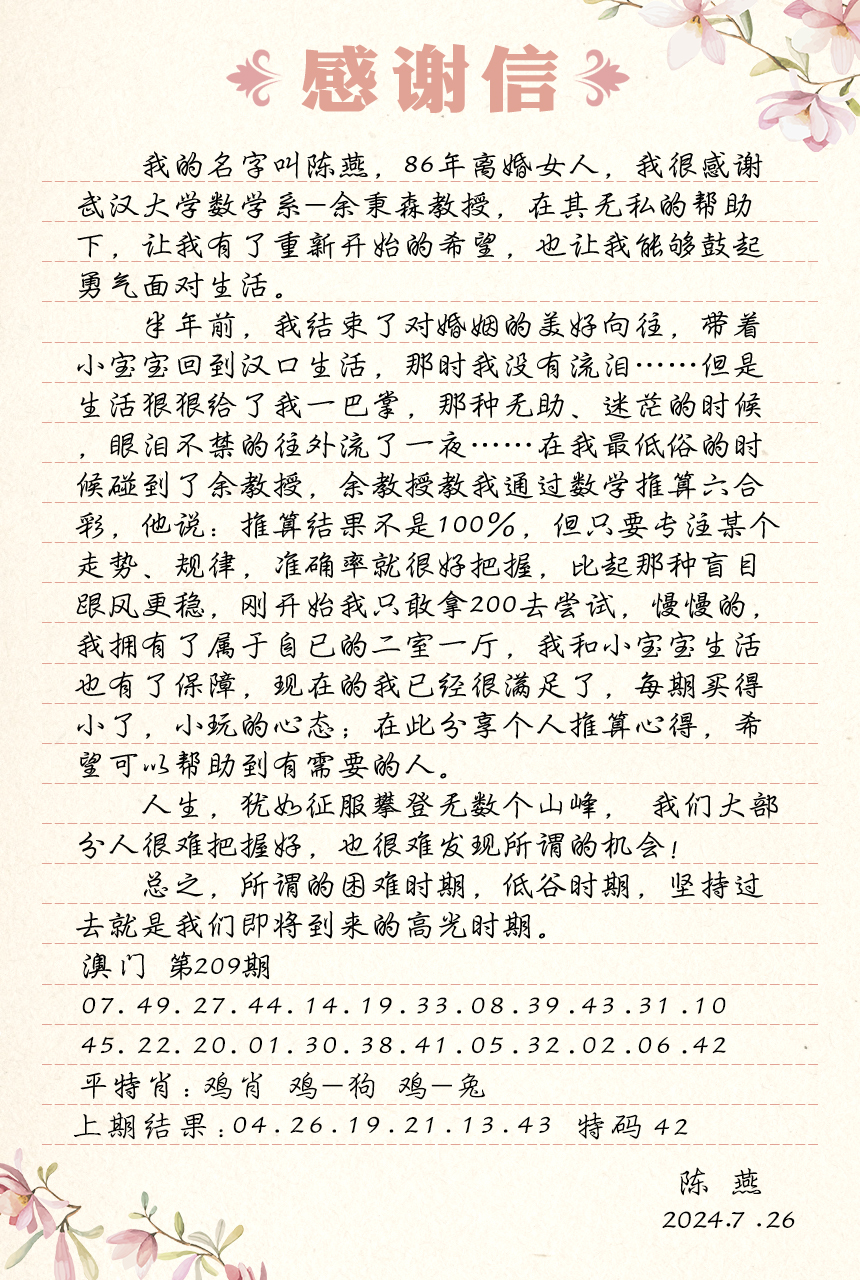 感谢信
我的名字叫陈燕，86年离婚女人，我很感谢
武汉大学数学系—余秉森教授，在其无私的帮助
下，让我有了重新开始的希望，也让我能够鼓起
勇气面对生活。
半年前，我结束了对婚姻的美好向往，带着
小宝宝回到汉口生活，那时我没有流泪……但是
生活狠狠给了我一巴掌，那种无助、迷茫的时候
，眼泪不禁的往外流了一夜……在我最低俗的时
候碰到了余教授，余教授教我通过数学推算六合
彩，他说：推算结果不是100%，但只要专注某个
走势、规律，准确率就很好把握，比起那种盲目
跟风更稳，刚开始我只敢拿200去尝试，慢慢的，
我拥有了属于自已的二室一厅，我和小宝宝生活
也有了保障，现在的我已经很满足了，每期买得
小了，小玩的心态；在此分享个人推算心得，希
望可以帮助到有需要的人。
人生，犹如征服攀登无数个山峰， 我们大部
分人很难把握好，也很难发现所谓的机会！
总之，所谓的困难时期，低谷时期，坚持过
去就是我们即将到来的高光时期。
澳门 第209期
07.49.27.44.14.19.33.08.39.43.31.10
45.22.20.01.30.38.41.05.32.02.06.42
平特肖：鸡肖 鸡—狗 鸡—兔
上期结果：04.26.19.21.13.43 特码 42
陈 燕
2024.7.26